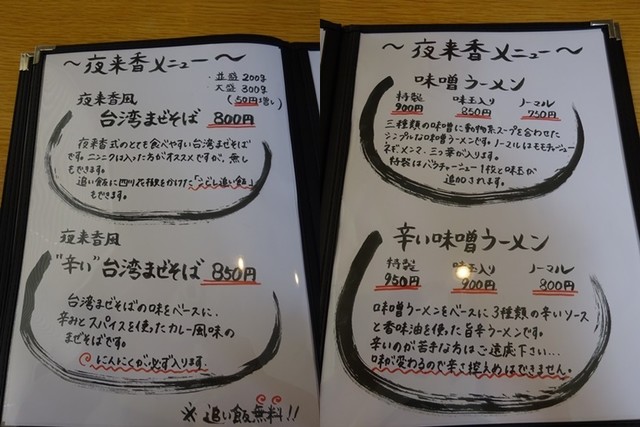 ～夜来香メニュー～
・並盛 200g
・大盛 300g
(50円増し)
夜来香風
台湾まぜそば 800円
夜来香式のとても食べやすい台湾まぜそば
です。ニンニクは入った方がオススメですが、無し
もできます。
追い飯に四川花椒をかけた「しびし追い飯」
もできます。
夜来香風
"辛い"台湾まぜそば 850円
台湾まぜそばの味をベースに、
辛みとスパイスを使ったカレー風味の
まぜそばです。
にんにくが必ず入ります。
※追い飯無料!!
～夜来香メニュー～
味噌ラーメン
特製 味玉入り ノーマル
900円 850円 750円
三種類の味噌に動物系スープを合わせた
シンプルな味噌ラーメンです。ノーマルはモモチャーシュー
ネギ、メンマ、三つ葉が入ります。
特製はバラチャーシュー1枚と味玉が
追加されます。
辛い味噌ラーメン
特製 味玉入り ノーマル
950円 900円 800円
味噌ラーメンをベースに3種類の辛いソース
と香味油を使った旨辛ラーメンです。
辛いのが苦手な方はご遠慮下さい…
味が変わるので辛さ控えめはできません。